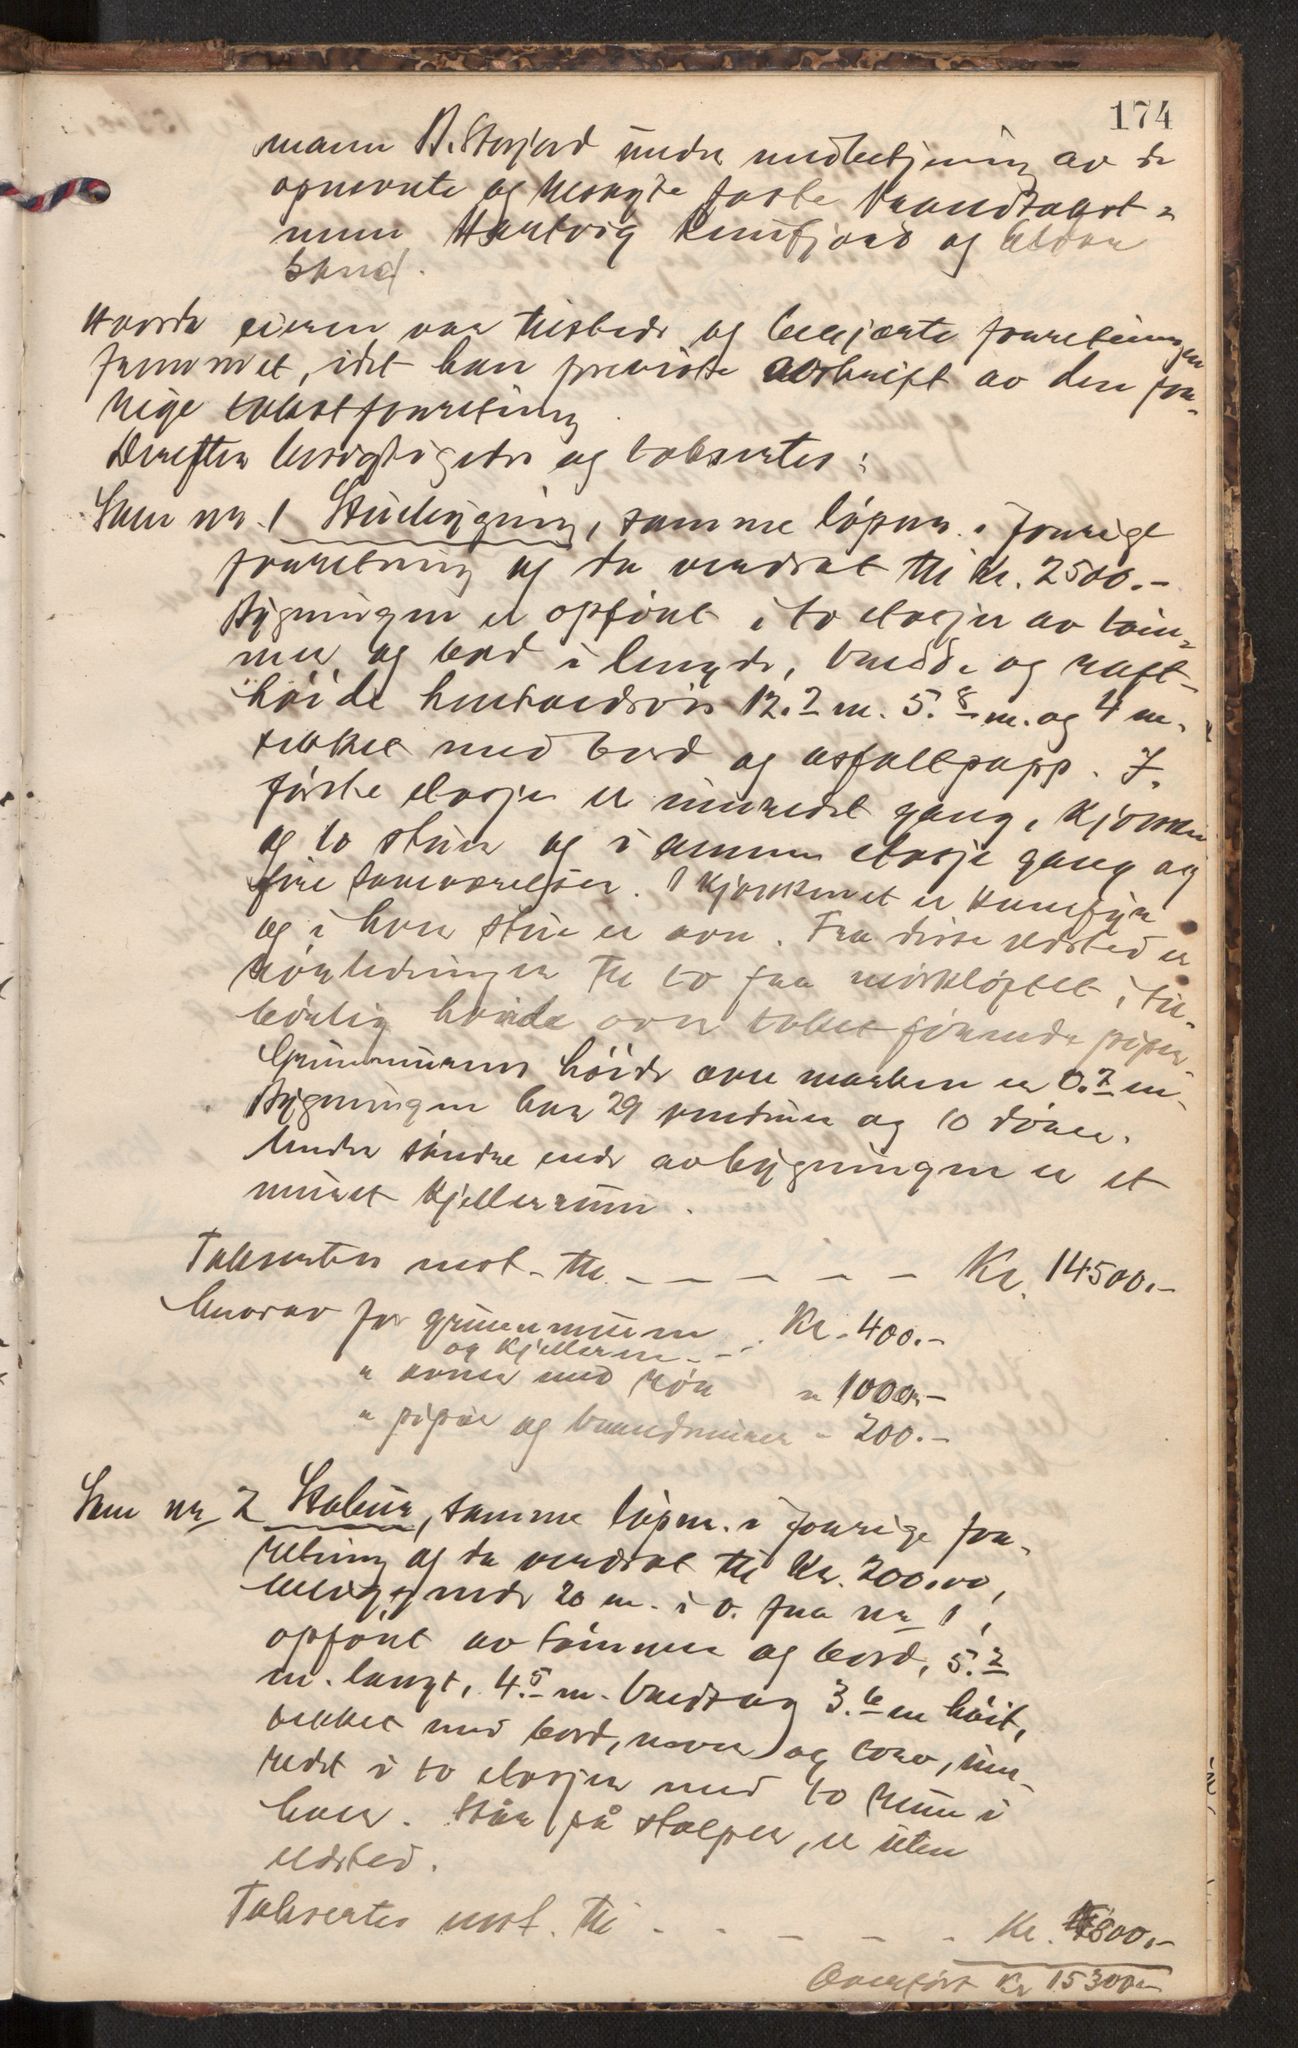 174
mann B. Storjord under medbetjening av de
opnevnte og beskyte faste brandtakst-
menn Hartvig Lumfjord og
Sand.
Hvorda eieren var tilstede og begjærte forretningen
fremmet, idet han foreviste avskrift av den for-
rige takstforretning.
Derefter besigtigedes og taksertes:
Som nr. 1 Stuebygning, samme løpenr. i forrige
forretning og da verdsat til kr. 2500.-
Bygningen er opført i to etasjer av tøm-
mer og bord i lengde, bredde og raft-
høide henholdsvis 12.7 m. 5.8 m. og 4 m.
tekket med bord og asfaltpapp. I
første etasje er innredet gang, kjøkken
og to stuer og i annen etasje gang og
fire soveværelser. I kjøkkenet er komfyr
og i hver stue er ovn. Fra disse ildsted er
rørledninger til to fra mørkloftet i til-
børlig høide over taket førende piper
Grunnmurens høide over marken er 0.7 m.
Bygningen har 29 vinduer og 10 dører.
Under søndre ende av bygningen er et
muret kjellerrum.
Taksertes mot. til - - - - - - Kr. 14500.-
herav for grunnmuren . Kr. 400.-
og kjelleren - -
" ovner med rør " 1000.-
" piper og brandmurer " 200.-
Som nr 2 Stabur, samme løpnr. i forrige for-
retning og da verdsat til kr. 200.00,
beliggende 20 m. i ø. fra nr 1,
opført av tømmer og bord, 5.2
m. langt, 4.5 m. bredt og 3.6 m høit,
tekket med bord, never og torv, inn-
redet i to etasjer med to rum i
hver. Står på stolper, er uten
ildsted.
Taksertes mot. til - - - - - Kr. 800.-
Overført Kr 15300.-